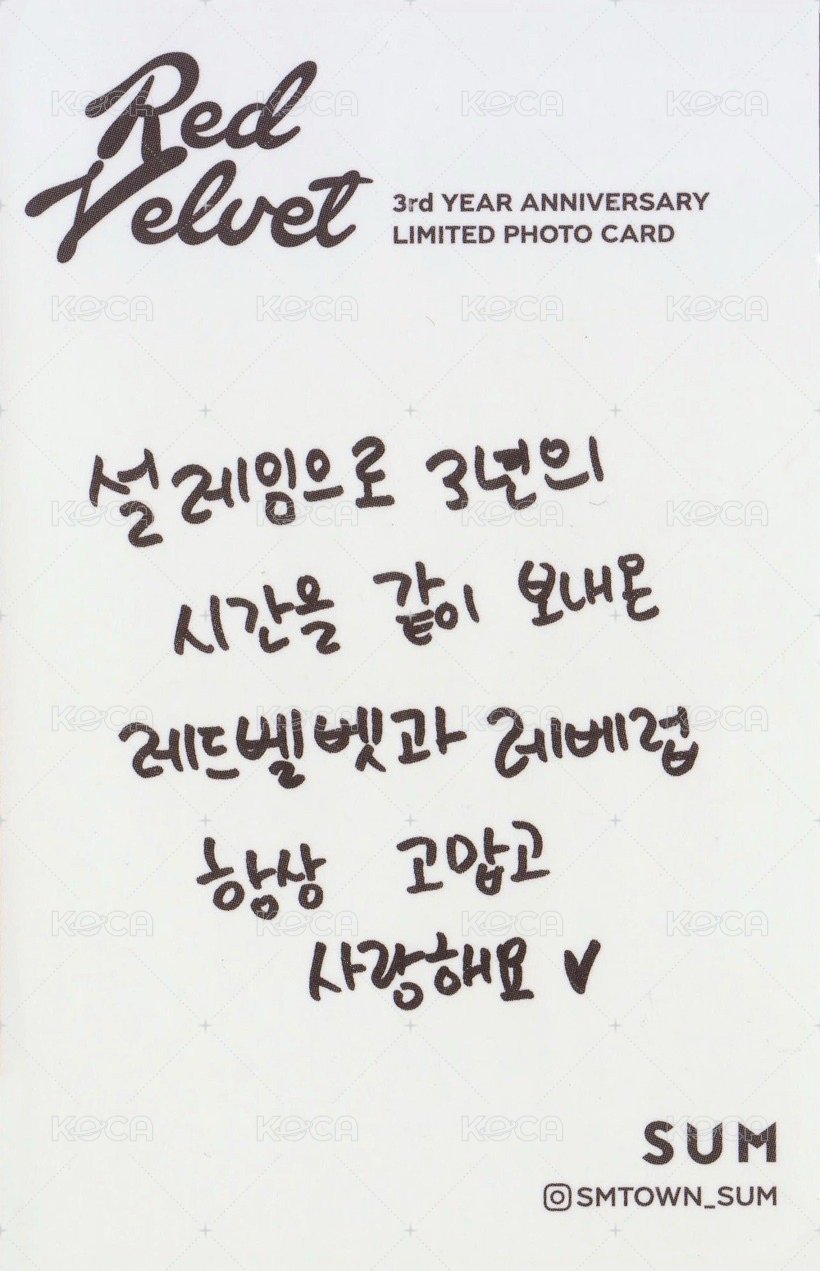 Red
Velvet
3rd YEAR ANNIVERSARY
LIMITED PHOTO CARD
설레임으로 3년의
시간을 같이 보내온
레드벨벳과 레베럽
항상 고맙고
사랑해요 ♥
SUM
SMTOWN_SUM
KOCA